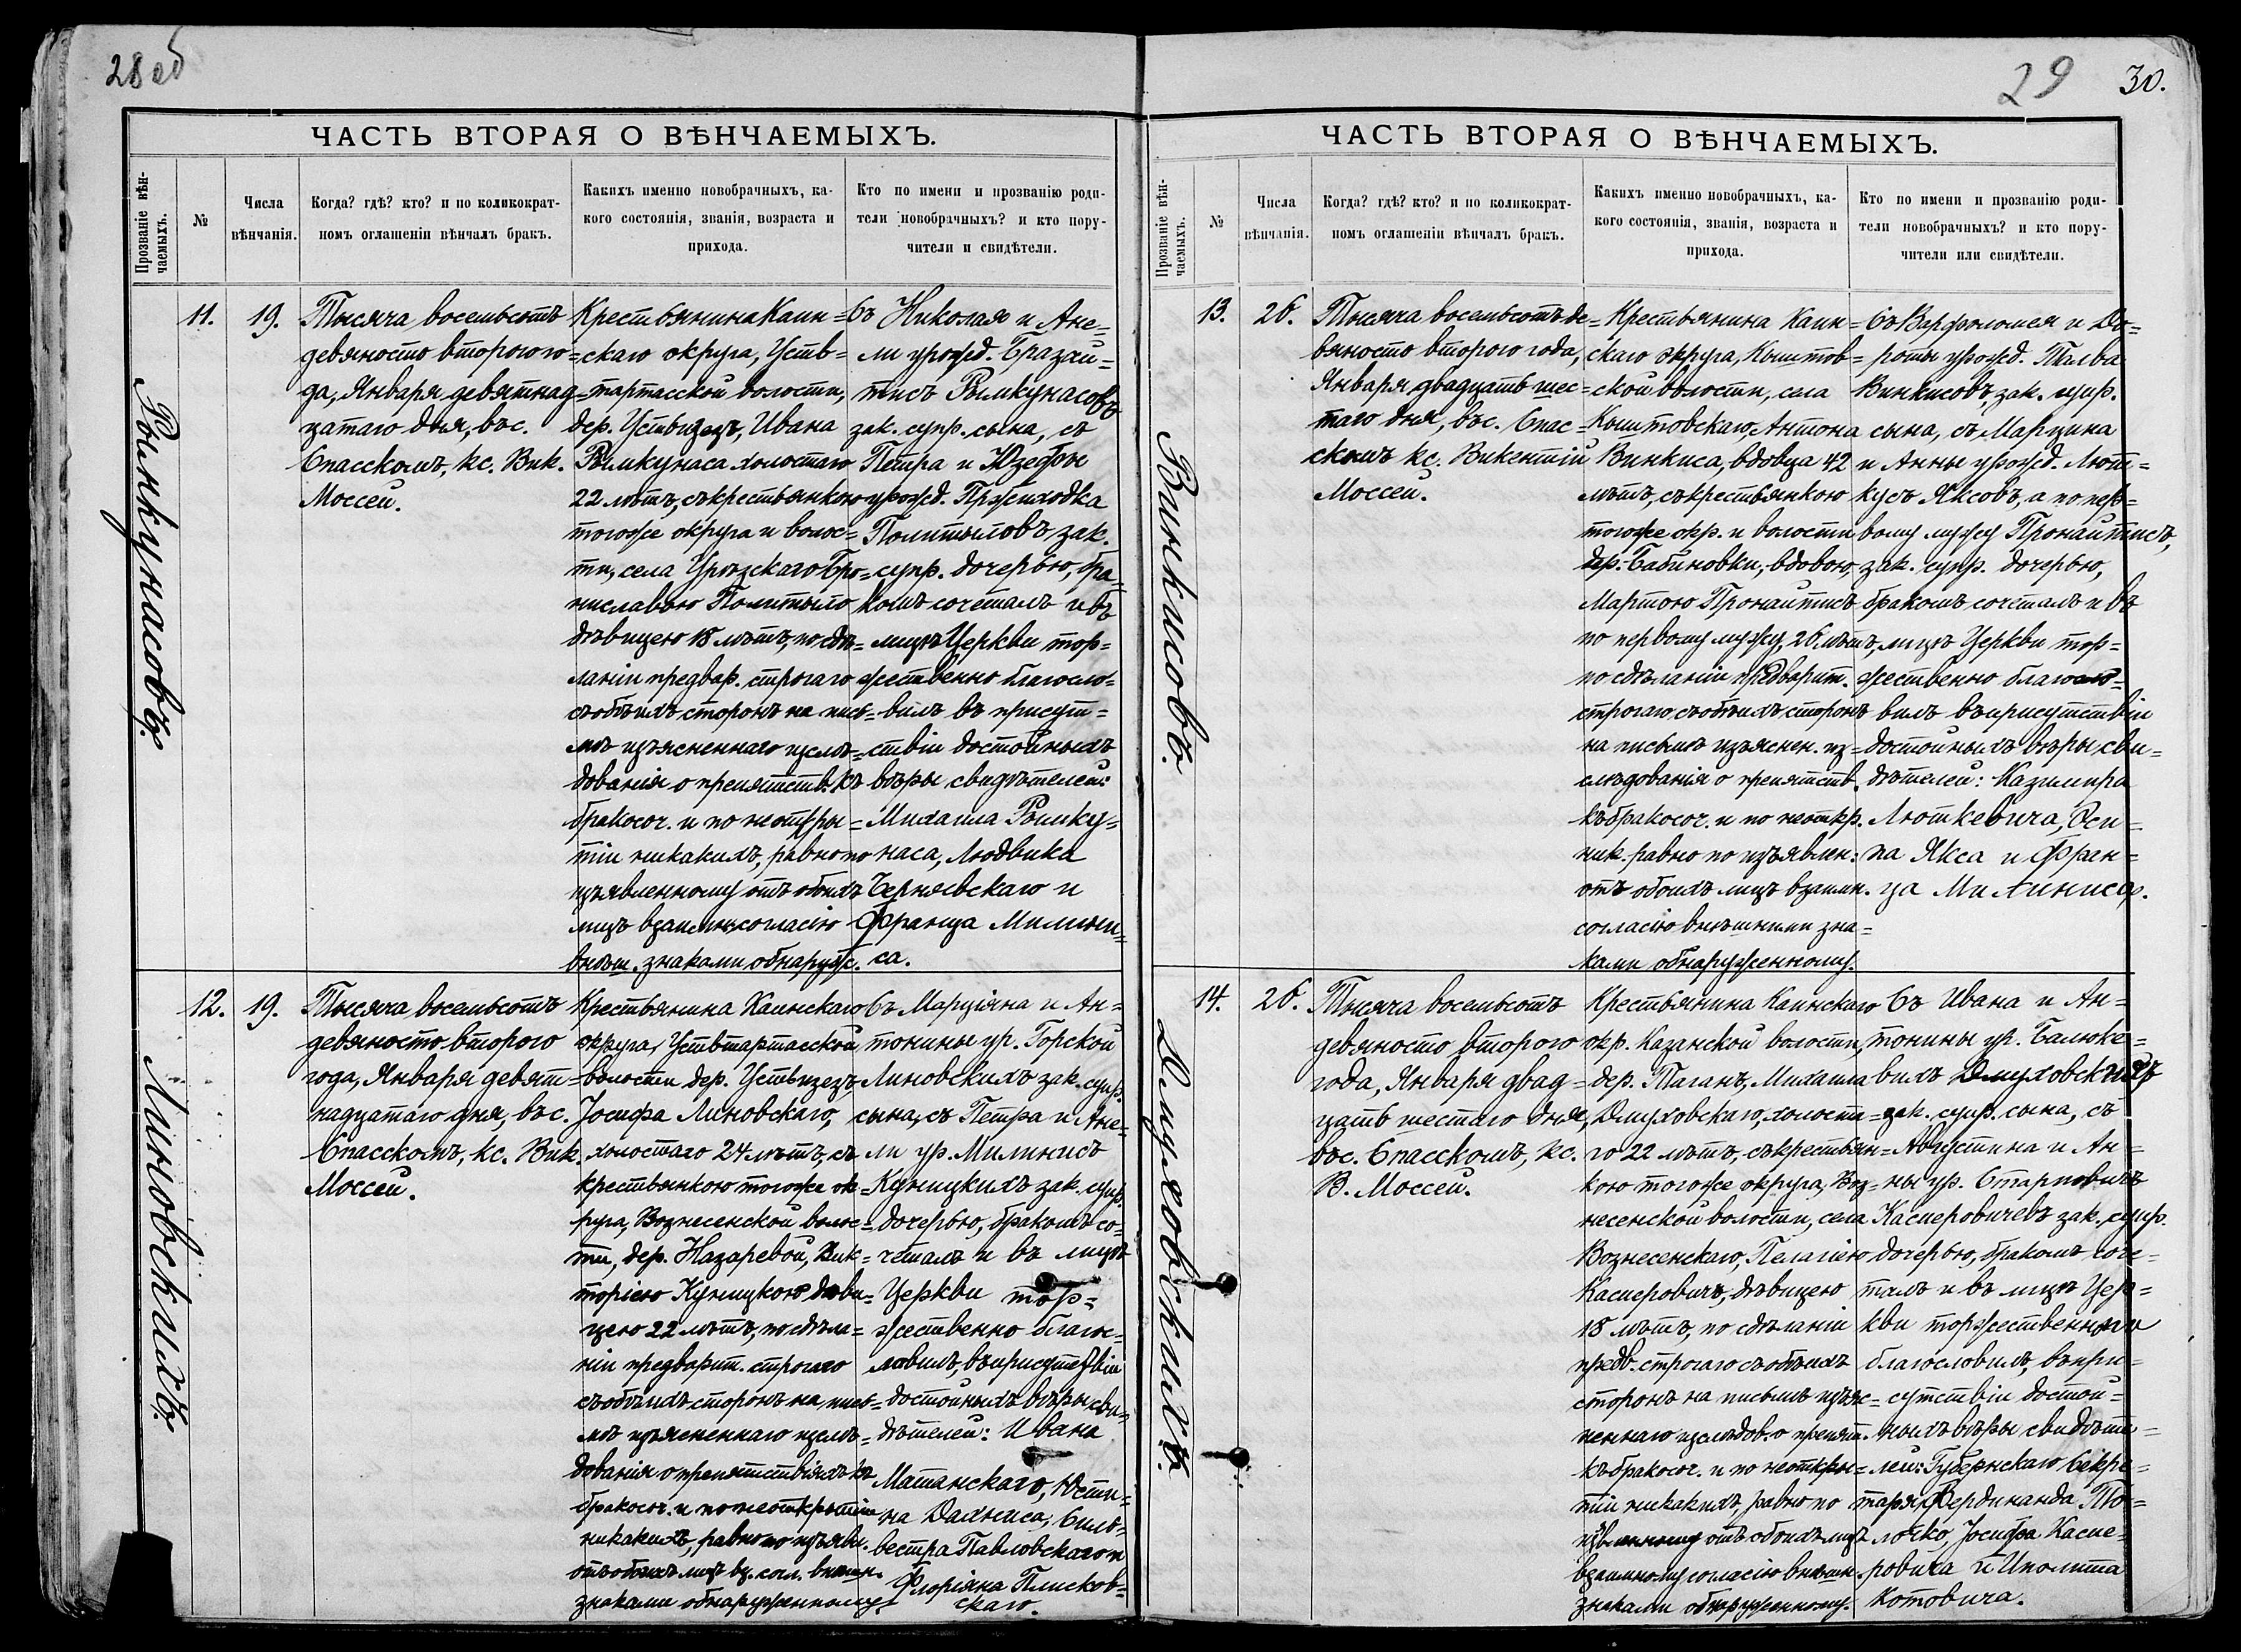 28 об
ЧАСТЬ ВТОРАЯ О ВѢНЧАЕМЫХЪ.
Прозваніе вѣн-
чаемыхъ.
№
Числа
вѣнчанія.
Когда? гдѣ? кто? и по коликократ-
номъ оглашеніи вѣнчалъ бракъ.
Какихъ именно новобрачныхъ, ка-
кого состоянія, званія, возраста и
прихода.
Кто по имени и прозванію роди-
тели новобрачныхъ? и кто пору-
чители и свидѣтели.
Рымкунасовъ.
11.
19.
Тысяча восемьсотъ
девяносто второго го=
да, Января девятнад=
цатаго дня, въ с.
Спасскомъ, кс. Вик.
Моссей.
Крестьянина Каин=
скаго округа, Усть=
тартасской волости,
дер. Устьизезъ, Ивана
Рымкунаса холостаго
22 лѣтъ, съ крестьянкою
тогоже округа и волос=
ти, села Урѣзскаго Бро=
ниславою Политыло
дѣвицею 18 лѣтъ, по сдѣ=
ланіи предвар. строгаго
съ обѣихъ сторонъ на пись=
мѣ изъясненнаго изслѣ=
дованія о препятств. къ
бракосоч. и по неоткры=
тіи никакихъ, равно по
изъявленному отъ обоихъ
лицъ взаимн. согласію
внѣш. знаками обнаруж.
Съ Николая и Ане=
ли урожд. Бразай=
тисъ Рымкунасовъ
зак. супр. сына, съ
Петра и Юзефы
урожд. Пржиходка
Политыловъ зак.
супр. дочерью, бра=
комъ сочеталъ и въ
лицѣ Церкви тор=
жественно благосло=
вилъ въ присут=
ствіи достойныхъ
вѣры свидѣтелей:
Михаила Рымку=
наса, Людвика
Чернявскаго и
Франца Милини=
са.
Линовскихъ.
12.
19.
Тысяча восемьсотъ
девяносто второго
года, Января девят=
надцатаго дня, въ с.
Спасскомъ, кс. Вик.
Моссей.
Крестьянина Каинскаго
округа, Устьтартасской
волости дер. Устьизезъ,
Іосифа Линовскаго,
холостаго 24 лѣтъ, съ
крестьянкою тогоже ок=
руга, Вознесенской волос=
ти, дер. Назаревой, Вик=
торіею Куницкою дѣви=
цею 22 лѣтъ, по сдѣла=
ніи предварит. строгаго
съ обѣихъ сторонъ на пись=
мѣ изъясненнаго изслѣ=
дованія о препятствіяхъ къ
бракосоч. и по неоткрытіи
никакихъ, равно по изъявл.
отъ обоихъ лицъ вз. согл. внѣшн.
знаками обнаруженному.
Съ Марціяна и Ан=
тонины ур. Горской
Линовскихъ зак. супр.
сына, съ Петра и Ане=
ли ур. Милинисъ
Куницкихъ зак. супр.
дочерью, бракомъ со=
четалъ и въ лицѣ
Церкви тор=
жественно благос=
ловилъ, въ присутствіи
достойныхъ вѣры сви=
дѣтелей: Ивана
Матанскаго, Юсти=
на Дахниса, Силь=
вестра Павловскаго и
Флоріяна Плисков=
скаго.
29
30.
ЧАСТЬ ВТОРАЯ О ВѢНЧАЕМЫХЪ.
Прозваніе вѣн-
чаемыхъ.
№
Числа
вѣнчанія.
Когда? гдѣ? кто? и по коликократ-
номъ оглашеніи вѣнчалъ бракъ.
Какихъ именно новобрачныхъ, ка-
кого состоянія, званія, возраста и
прихода.
Кто по имени и прозванію роди-
тели новобрачныхъ? и кто пору-
чители или свидѣтели.
Винкисовъ.
13.
26.
Тысяча восемьсотъ де=
вяносто второго года,
Января двадцать шес=
таго дня, въ с. Спас=
скомъ кс. Викентій
Моссей.
Крестьянина Каин=
скаго округа, Кыштов=
ской волости, села
Кыштовскаго, Антона
Винкиса, вдовца 42
лѣтъ, съ крестьянкою
тогоже окр. и волости
дер. Бабиновки, вдовою,
Мартою Пронайтисъ
по первому мужу, 26 лѣтъ,
по сдѣланіи предварит.
строгаго съ обѣихъ сторонъ
на письмѣ изъяснен. из=
слѣдованія о препятств.
къ бракосоч. и по неоткр.
ник. равно по изъявлен:
отъ обоихъ лицъ взаимн.
согласію внѣшними зна=
ками обнаруженному.
Съ Варфоломея и До=
роты урожд. Тылва
Винкисовъ, зак. супр.
сына, съ Марцина
и Анны урожд. Лют=
кусъ Яксовъ, а по пер=
вому мужу Пронайтисъ,
зак. супр. дочерью,
бракомъ сочеталъ и въ
лицѣ Церкви тор=
жественно благосло=
вилъ въ присутствіи
достойныхъ вѣры сви=
дѣтелей: Казимира
Люткевича, Оси=
па Якса и Фран=
ца Милиниса.
Длуховскихъ.
14.
26.
Тысяча восемьсотъ
девяносто второго
года, Января двад=
цать шестаго дня,
въ с. Спасскомъ, кс.
В. Моссей.
Крестьянина Каинскаго
окр. Казанской волости,
дер. Таганъ, Михаила
Длуховскаго, холоста=
го 22 лѣтъ, съ крестьян=
кою тогоже округа, Воз=
несенской волости, села
Вознесенскаго, Пелагіею
Касперовичъ, дѣвицею
18 лѣтъ, по сдѣланіи
предв. строгаго съ обѣихъ
сторонъ на письмѣ изъяс=
неннаго изслѣдов. о препят.
къ бракосоч. и по неоткры=
тіи никакихъ, равно по
изъявленному отъ обоихъ лицъ
взаимному согласію внѣшн.
знаками обнаруженному.
Съ Ивана и Ан=
тонины ур. Балюке=
вихъ Длуховскихъ
зак. супр. сына, съ
Августина и Ан=
ны ур. Старповичъ
Касперовичевъ зак. супр.
дочерью, бракомъ соче=
талъ и въ лицѣ Цер=
кви торжественно
благословилъ, въ при=
сутствіи достой=
ныхъ вѣры свидѣте=
лей: Губернскаго Секре=
таря Фердинанда
лочко, Іосифа Каспе=
ровича и Иполита
Котовича.